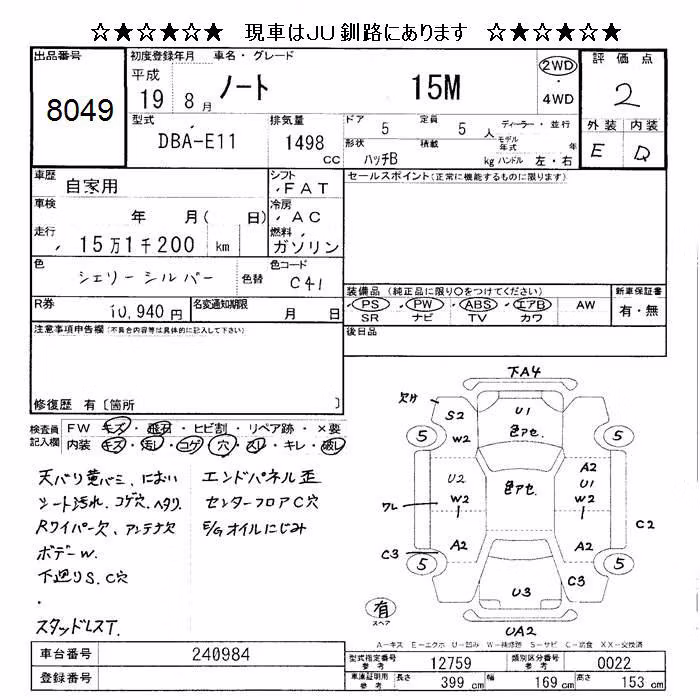 ☆★☆★☆★ 現車はＪＵ釧路にあります ☆★☆★☆★
出品番号
8049
初度登録年月 車名・グレード
平成
19 8月 ノート 15M
2WD
4WD
評価点
2
外装 内装
E D
型式 DBA-E11
排気量 1498 CC
ドア 5 定員 5人 ディーラー・並行
形状 ハッチB 積載 kg モデル年式 年 ハンドル 左・右
車歴 自家用
シフト FAT
セールスポイント(正常に機能するものに限ります)
車検 年 月( 日)
冷房 AC
走行 15万1千200 km
燃料 ガソリン
色 シェリーシルバー 色替
色コード C41
R券 10,940円
名変通知期限 月 日
装備品 (純正品に限り○をつけてください)
PS PW ABS エアB AW
SR ナビ TV カワ
新車保証書
有・無
注意事項申告欄(不具合内容等は具体的に記入して下さい)
後日品
修復歴 有〔箇所 〕
検査員記入欄
FW キズ・飛石・ヒビ割・リペア跡・×要
内装 キズ・汚レ・コゲ・穴・スレ・キレ・破レ
天バリ黄バミ、におい
シート汚れ、コゲ穴、ヘタリ
Rワイパー欠、アンテナ欠
ボデーW.
下廻りS、C穴
スタッドレスT.
エンドパネル歪
センターフロアC穴
E/Gオイルにじみ
下A4
欠け
S2
W2
U1
色アセ.
5
5
U2
W2
色アセ.
A2
U1
W2
ワレ
C2
A2
A2
C3
5
5
C3
U3
UA2
有
スペア
A-キズ E-エクボ U-凹み W-補修跡 S-サビ C-腐食 XX-交換済
車台番号 240984
登録番号
型式指定番号 参考 12759
類別区分番号 参考 0022
車庫証明用 参考 長さ 399cm 幅 169cm 高さ 153cm